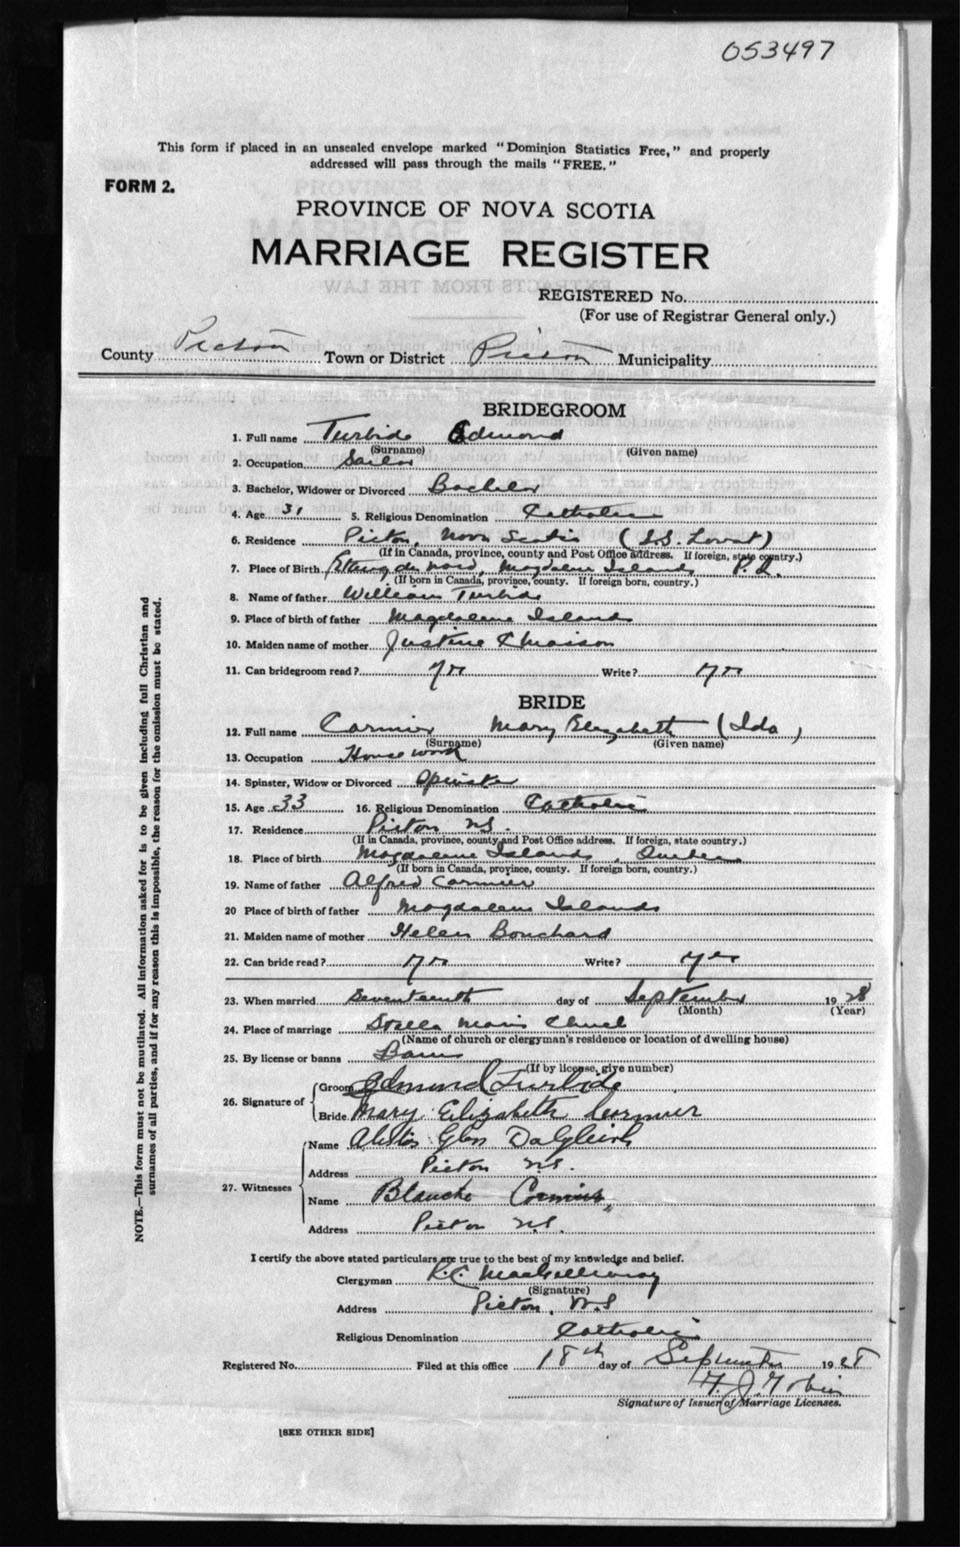 053497
This form if placed in an unsealed envelope marked "Dominion Statistics Free," and properly
addressed will pass through the mails "FREE."
FORM 2.
PROVINCE OF NOVA SCOTIA
MARRIAGE REGISTER
REGISTERED No.
(For use of Registrar General only.)
County Pictou Town or District Pictou Municipality
BRIDEGROOM
1. Full name Turbide Edmond
(Surname) (Given name)
2. Occupation Sailor
3. Bachelor, Widower or Divorced Bachelor
4. Age 31 5. Religious Denomination Catholic
6. Residence Pictou, Nova Scotia (S.S. Lovat)
(If in Canada, province, county and Post Office address. If foreign, state country.)
7. Place of Birth Etang du Nord, Magdalene Islands P.Q.
(If born in Canada, province, county. If foreign born, country.)
8. Name of father William Turbide
9. Place of birth of father Magdalene Islands
10. Maiden name of mother Justine Chiasson
11. Can bridegroom read? Yes Write? Yes
BRIDE
12. Full name Cormier Mary Elizabeth (Ida)
(Surname) (Given name)
13. Occupation Housework
14. Spinster, Widow or Divorced Spinster
15. Age 33 16. Religious Denomination Catholic
17. Residence Pictou N.S.
(If in Canada, province, county and Post Office address. If foreign, state country.)
18. Place of birth Magdalene Islands, Quebec
(If born in Canada, province, county. If foreign born, country.)
19. Name of father Alfred Cormier
20 Place of birth of father Magdalene Islands
21. Maiden name of mother Helen Bouchard
22. Can bride read? Yes Write? Yes
23. When married Seventeenth day of September 1928
(Month) (Year)
24. Place of marriage Stella Maris Church
(Name of church or clergyman's residence or location of dwelling house)
25. By license or banns Banns
(If by license, give number)
26. Signature of Groom Edmund Turbide
Bride Mary Elizabeth Cormier
27. Witnesses Name Glen
Address Pictou N.S.
Name Blanche Cormier
Address Pictou N.S.
I certify the above stated particulars are true to the best of my knowledge and belief.
Clergyman R.C. MacGillivray
(Signature)
Address Pictou, N.S
Religious Denomination Catholic
Registered No. Filed at this office 18th day of September 1928
F. J. Tobin
Signature of Issuer of Marriage Licenses.
[SEE OTHER SIDE]
NOTE.—This form must not be mutilated. All information asked for is to be given including full Christian and
surnames of all parties, and if for any reason this is impossible, the reason for the omission must be stated.